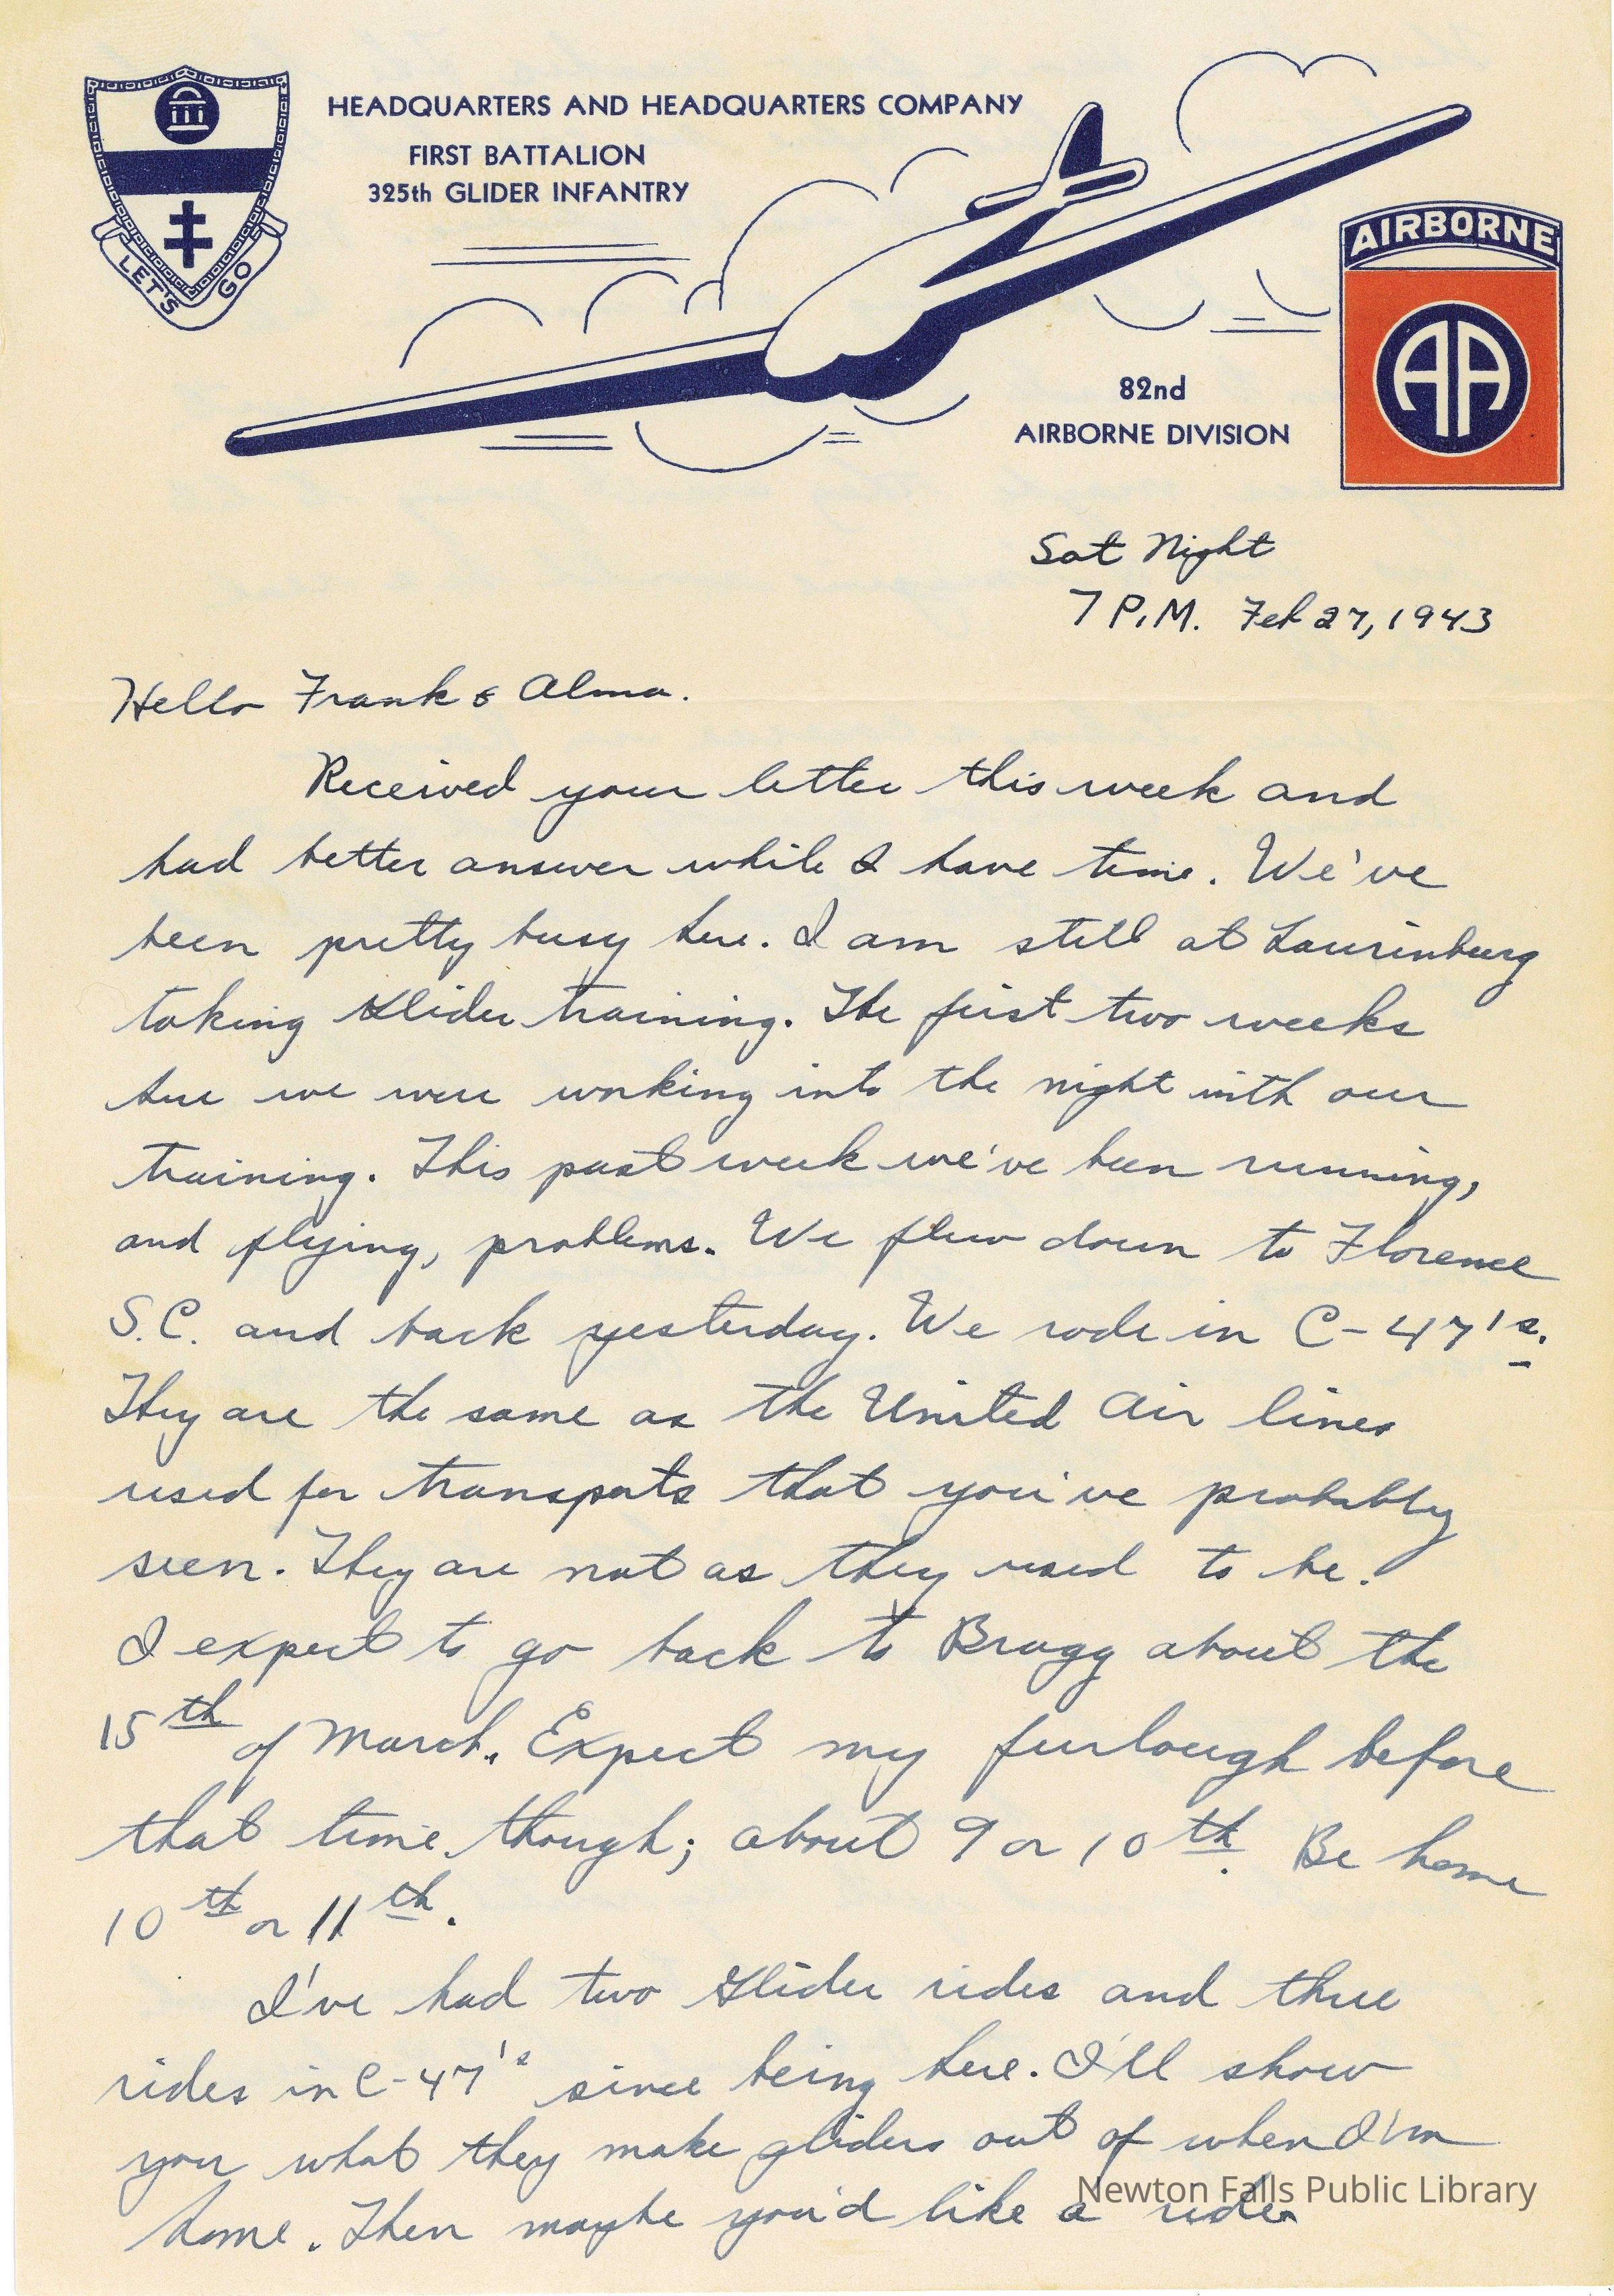 HEADQUARTERS AND HEADQUARTERS COMPANY
FIRST BATTALION
325th GLIDER INFANTRY
LET'S GO
AIRBORNE
AA
82nd
AIRBORNE DIVISION
Sat Night
7 P.M. Feb 27, 1943
Hello Frank & Alma.
Received your letter this week and
had better answer while I have time. We've
been pretty busy here. I am still at Laurinburg
taking Glider training. The first two weeks
here we were working into the night with our
training. This past week we've been running,
and flying, problems. We flew down to Florence
S.C. and back yesterday. We rode in C-47's.
They are the same as the United Air lines
used for transports that you've probably
seen. They are not as they used to be.
I expect to go back to Bragg about the
15th of March. Expect my furlough before
that time though; about 9 or 10th. Be home
10th or 11th.
I've had two Glider rides and three
rides in C-47's since being here. I'll show
you what they make gliders out of when I'm
home. Then maybe you'd like a ride.
Newton Falls Public Library